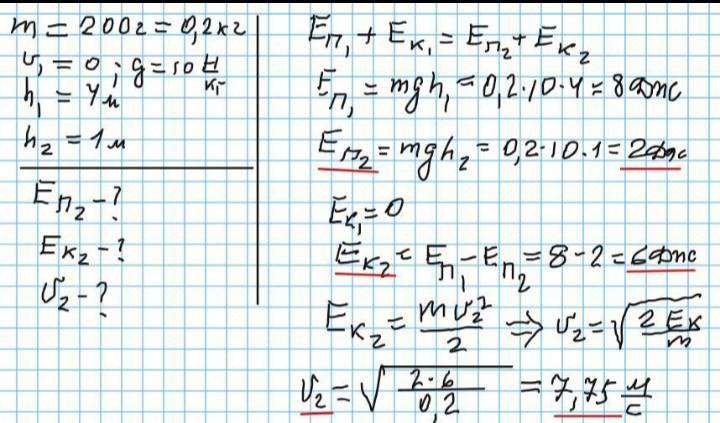 m = 200г = 0,2кг
υ₁ = 0 ; g = 10 Н/кг
h₁ = 4м
h₂ = 1м
Eп₂ - ?
Eк₂ - ?
υ₂ - ?
Eп₁ + Eк₁ = Eп₂ + Eк₂
Eп₁ = mgh₁ = 0,2·10·4 = 8Дж
Eп₂ = mgh₂ = 0,2·10·1 = 2Дж
Eк₁ = 0
Eк₂ = Eп₁ - Eп₂ = 8 - 2 = 6Дж
Eк₂ = mυ₂²/2 ⇒ υ₂ = √(2Eк/m)
υ₂ = √(2·6/0,2) = 7,75 м/с